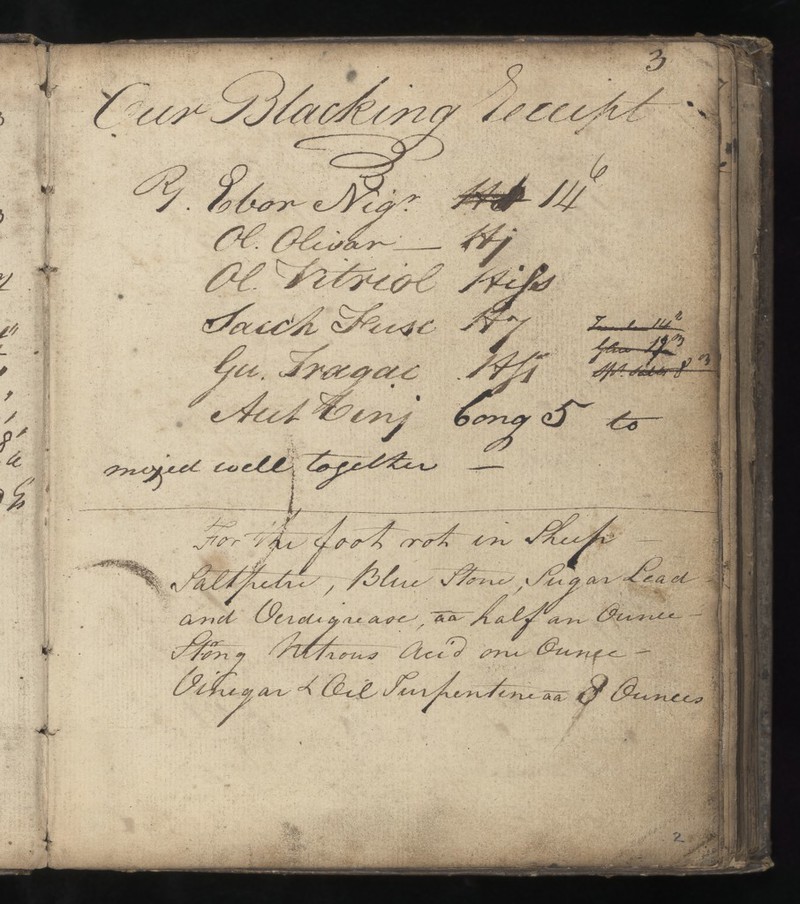 3
Our Blacking Receipt
℞. Ebor Nigr 14
Ol. Olivar — ℔j
Ol. Vitriol ℔iſs
Sacch Fusc ℔7
Gu. Tragac ℔ſs
Cong 5 to
mixed well together —
For the foot rot in Sheep —
Saltpetre, Blue Stone, Sugar Lead
and Verdigrease, aa half an Ounce —
Strong Nitrous Acid one Ounce —
Vinegar & Oil Turpentine aa 3 Ounces
2